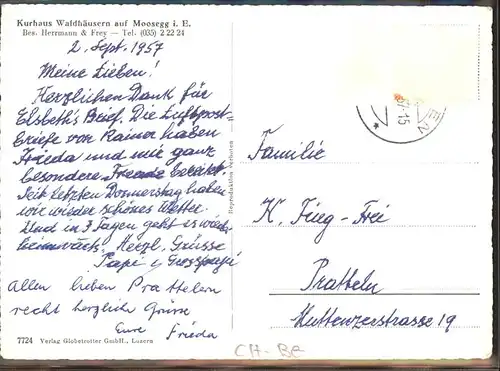 Kurhaus Waldhäusern auf Moosegg i. E.
Bes. Herrmann & Frey — Tel. (035) 2 22 24
2. Sept. 1957
Meine Lieben!
Herzlichen Dank für
Elsbeth's Brief. Die Luftpost-
briefe von Rainer haben
Frieda und mir ganz
besondere Freude bereitet.
Seit letzten Donnerstag haben
wir wieder schönes Wetter.
Und in 3 Tagen geht es wieder
heimwärts. Herzl. Grüsse
Papi u Grosspapi
Allen lieben Prattelern
recht herzliche Grüsse
Eure Frieda
7724 Verlag Globetrotter GmbH., Luzern
Reproduktion verboten
EN
57-15
Familie
K. Frei
Pratteln
Muttenzerstrasse 19
CH-BE